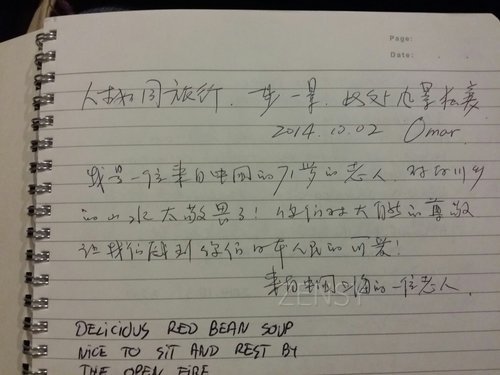 人生如同旅行. 步一景. 此处风景
2014.10.02 Omar.
我是一位来自中国的71岁的老人. 对
的山水太敬畏了! 你们对大自然的尊敬
让我们感到你们日本人民的可爱!
来自中国上海的一位老人.
DELICIOUS RED BEAN SOUP
NICE TO SIT AND REST BY
THE OPEN FIRE
Page:
Date: